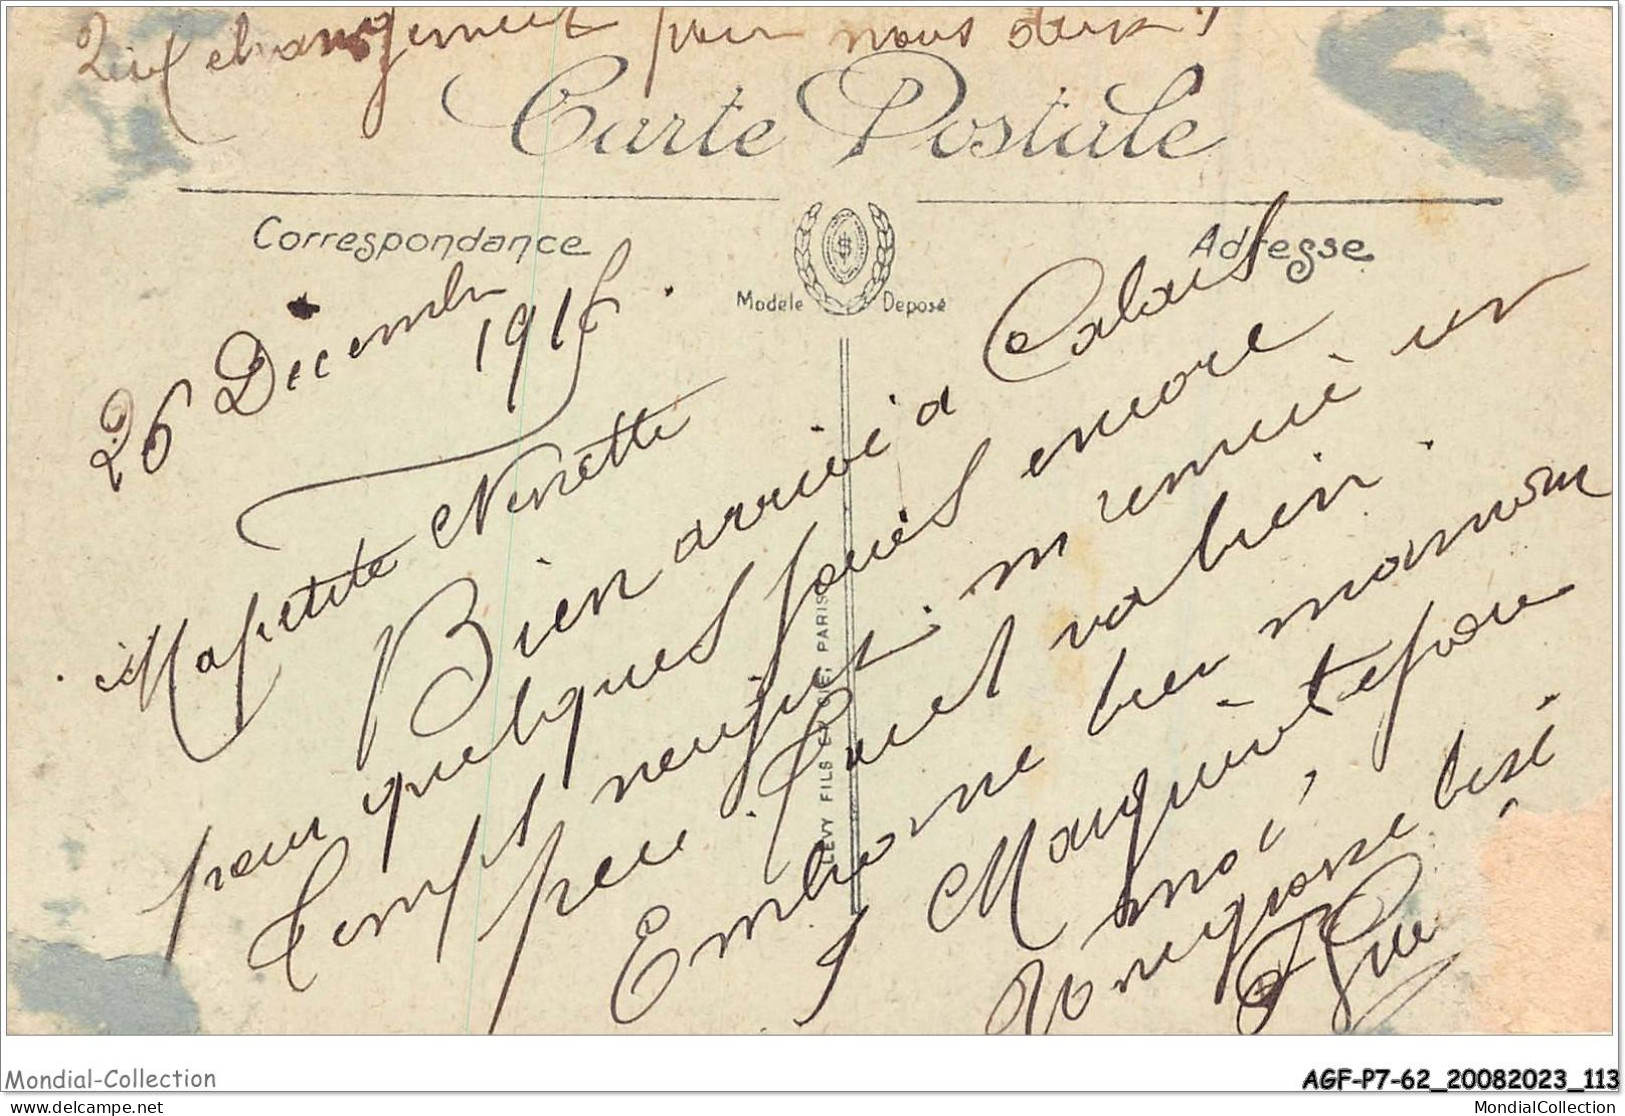 changement pour nous deux !
Carte Postale
Correspondance
Adresse
Modèle Deposé
26 Décembre
1915
Ma petite Ninette
Bien arrivé à Calais
pour quelques jours encore
temps neigeux m'ennuie un
peu. tout va bien.
Embrasse bien maman
Marguerite pour
moi,
gros baisé
LEVY FILS ET CIE, PARIS
Mondial-Collection
AGF-P7-62_20082023_113
Mondial-Collection
MondialCollection